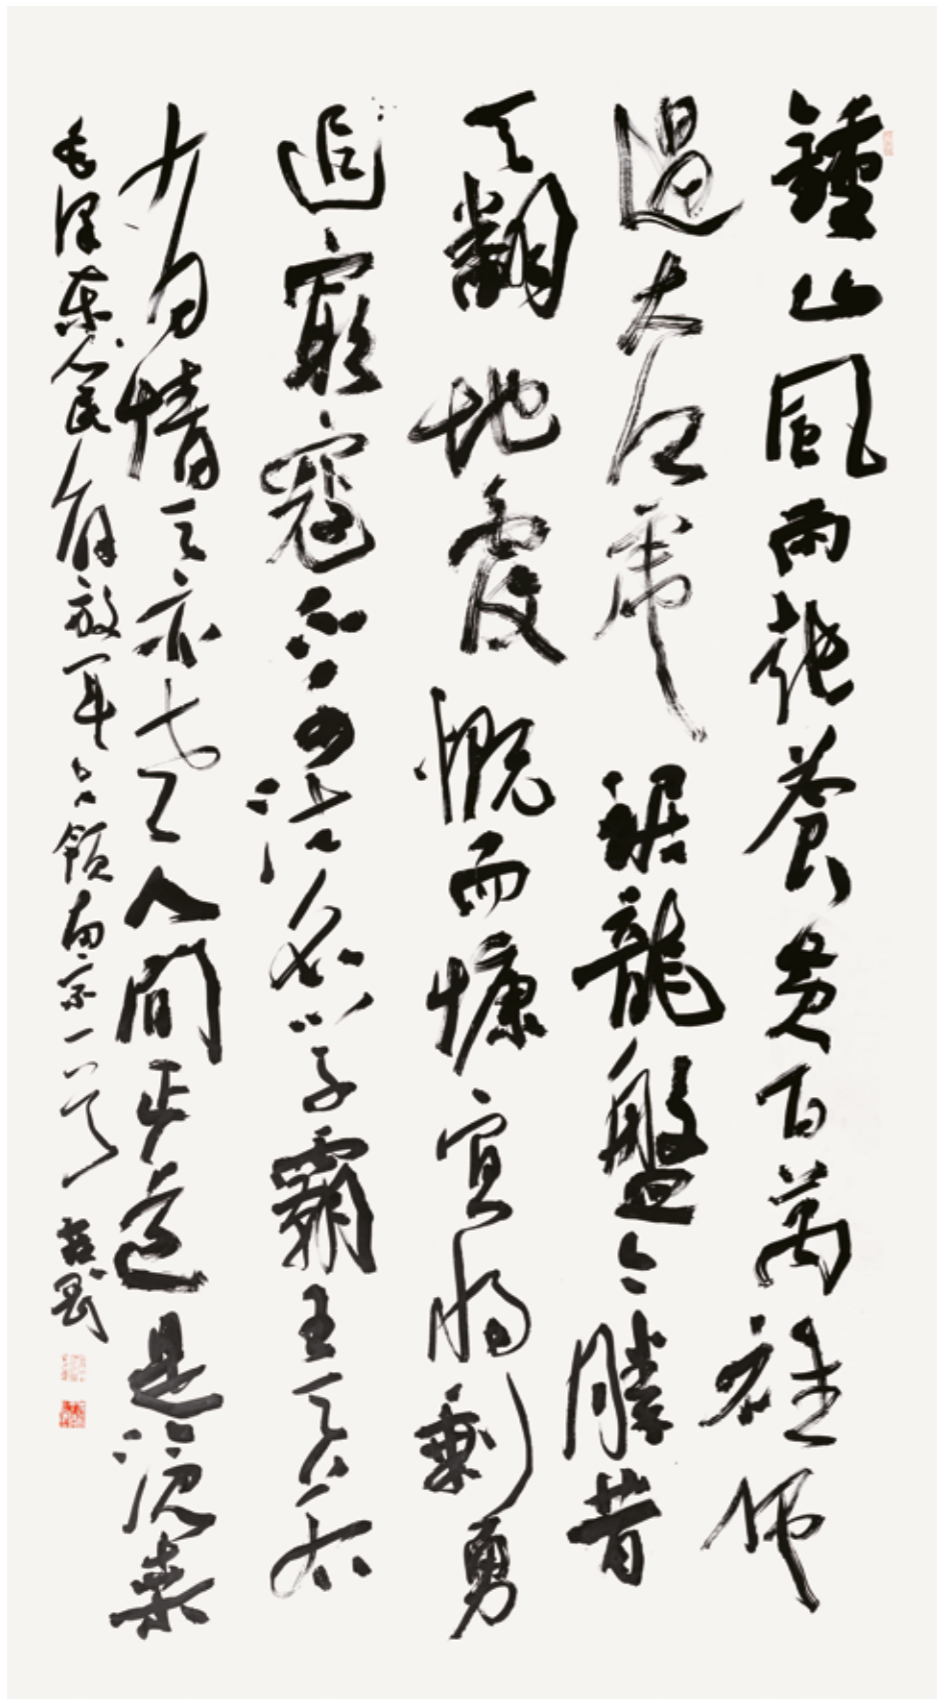 鍾山風雨起蒼黃百萬雄師
過大江虎踞龍盤今勝昔
天翻地覆慨而慷宜將剩勇
追窮寇不可沽名學霸王天若
有情天亦老人間正道是滄桑
毛澤東人民解放軍占領南京一首